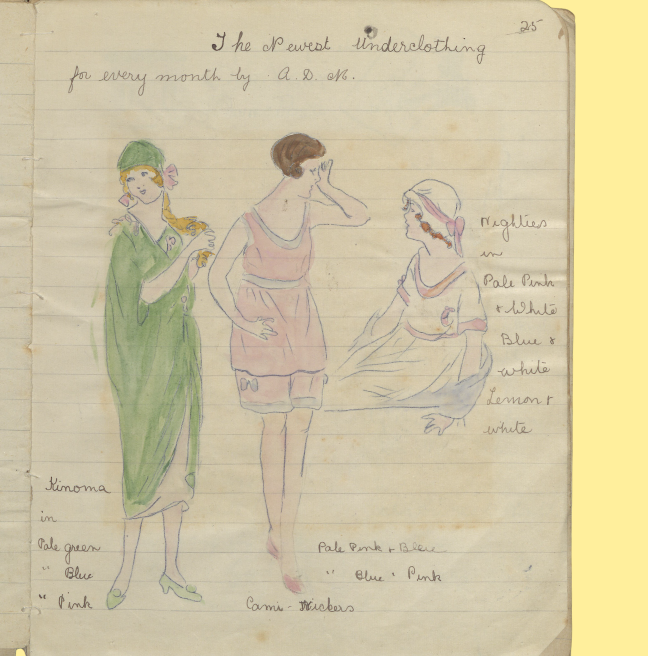 25
The Newest Underclothing
for every month by A. D. M.
Nighties
in
Pale Pink
& White
Blue &
white
Lemon &
white
Kinoma
in
Pale green
" Blue
" Pink
Pale Pink & Blue
" Blue " Pink
Cami-Knickers